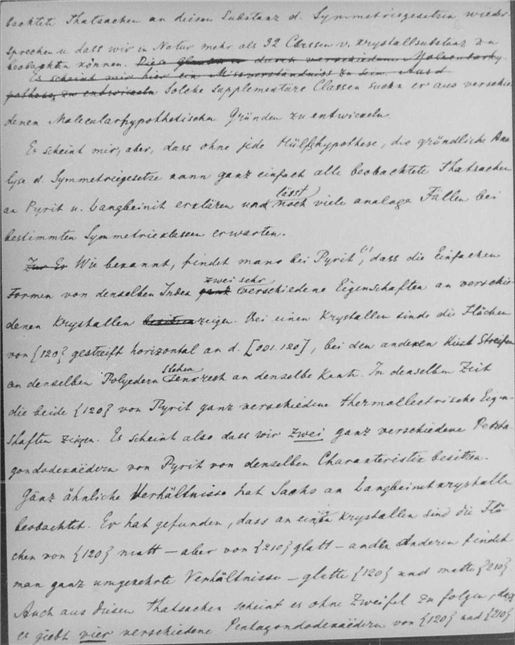 bachtete Thatsachen an diesen Substanz d. Symmetriegesetzen wieder
sprechen u. dass wir in Natur mehr als 32 Classen v. Krystallsubstanz zu
beobachten können.
Es scheint mir hier ein Missverständniss zu sein.
pothese zu entwickeln Solche supplementäre Classen sucht er aus verschie
denen Molecularhypothetischen Gründen zu entwickeln.
Es scheint mir, aber, dass ohne jede Hülfshypothese, die gründliche Ana
lyse d. Symmetriegesetze kann ganz einfach alle beobachtete Thatsachen
an Pyrit u. Langbeinit erklären und lässt noch viele analoge Fallen bei
bestimmten Symmetrieclassen erwarten.
Wie bekannt, findet mann bei Pyrit (1), dass die Einfachen
Formen von denselben Index zwei sehr verschiedene Eigenschaften an verschie
denen Krystallen besitzen zeigen. Bei einen Krystallen sind die Flächen
von {120} gestreift horizontal an d. [001.120], bei den anderen stehen Streifen
an denselben Polyedern senkrecht an denselbe Kante. In denselben Zeit
die beide {120} von Pyrit ganz verschiedene thermoellectrische Eigen-
shaften zeigen. Es scheint also dass wir zwei ganz verschiedene Penta
gondodekaëdern von Pyrit von denselben Charakteristic besitzen.
Gänz ähnliche Verhältnisse hat Sachs an Langbeinitkrystalle
beobachtet. Er hat gefunden, dass an einige Krystallen sind die Flä
chen von {120} matt – aber von {210} glatt – anderen findet
man ganz umgekehrte Verhältnisse – glatte {120} und matte {210}
Auch aus diesen Thatsachen scheint es ohne Zweifel zu folgen, dass
es giebt vier verschiedene Pentagondodekaëdern von {120} und {210}